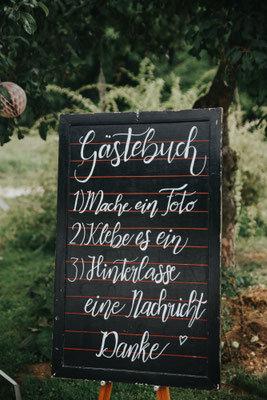 Gästebuch
1) Mache ein Foto
2) Klebe es ein
3) Hinterlasse
eine Nachricht
Danke ♡